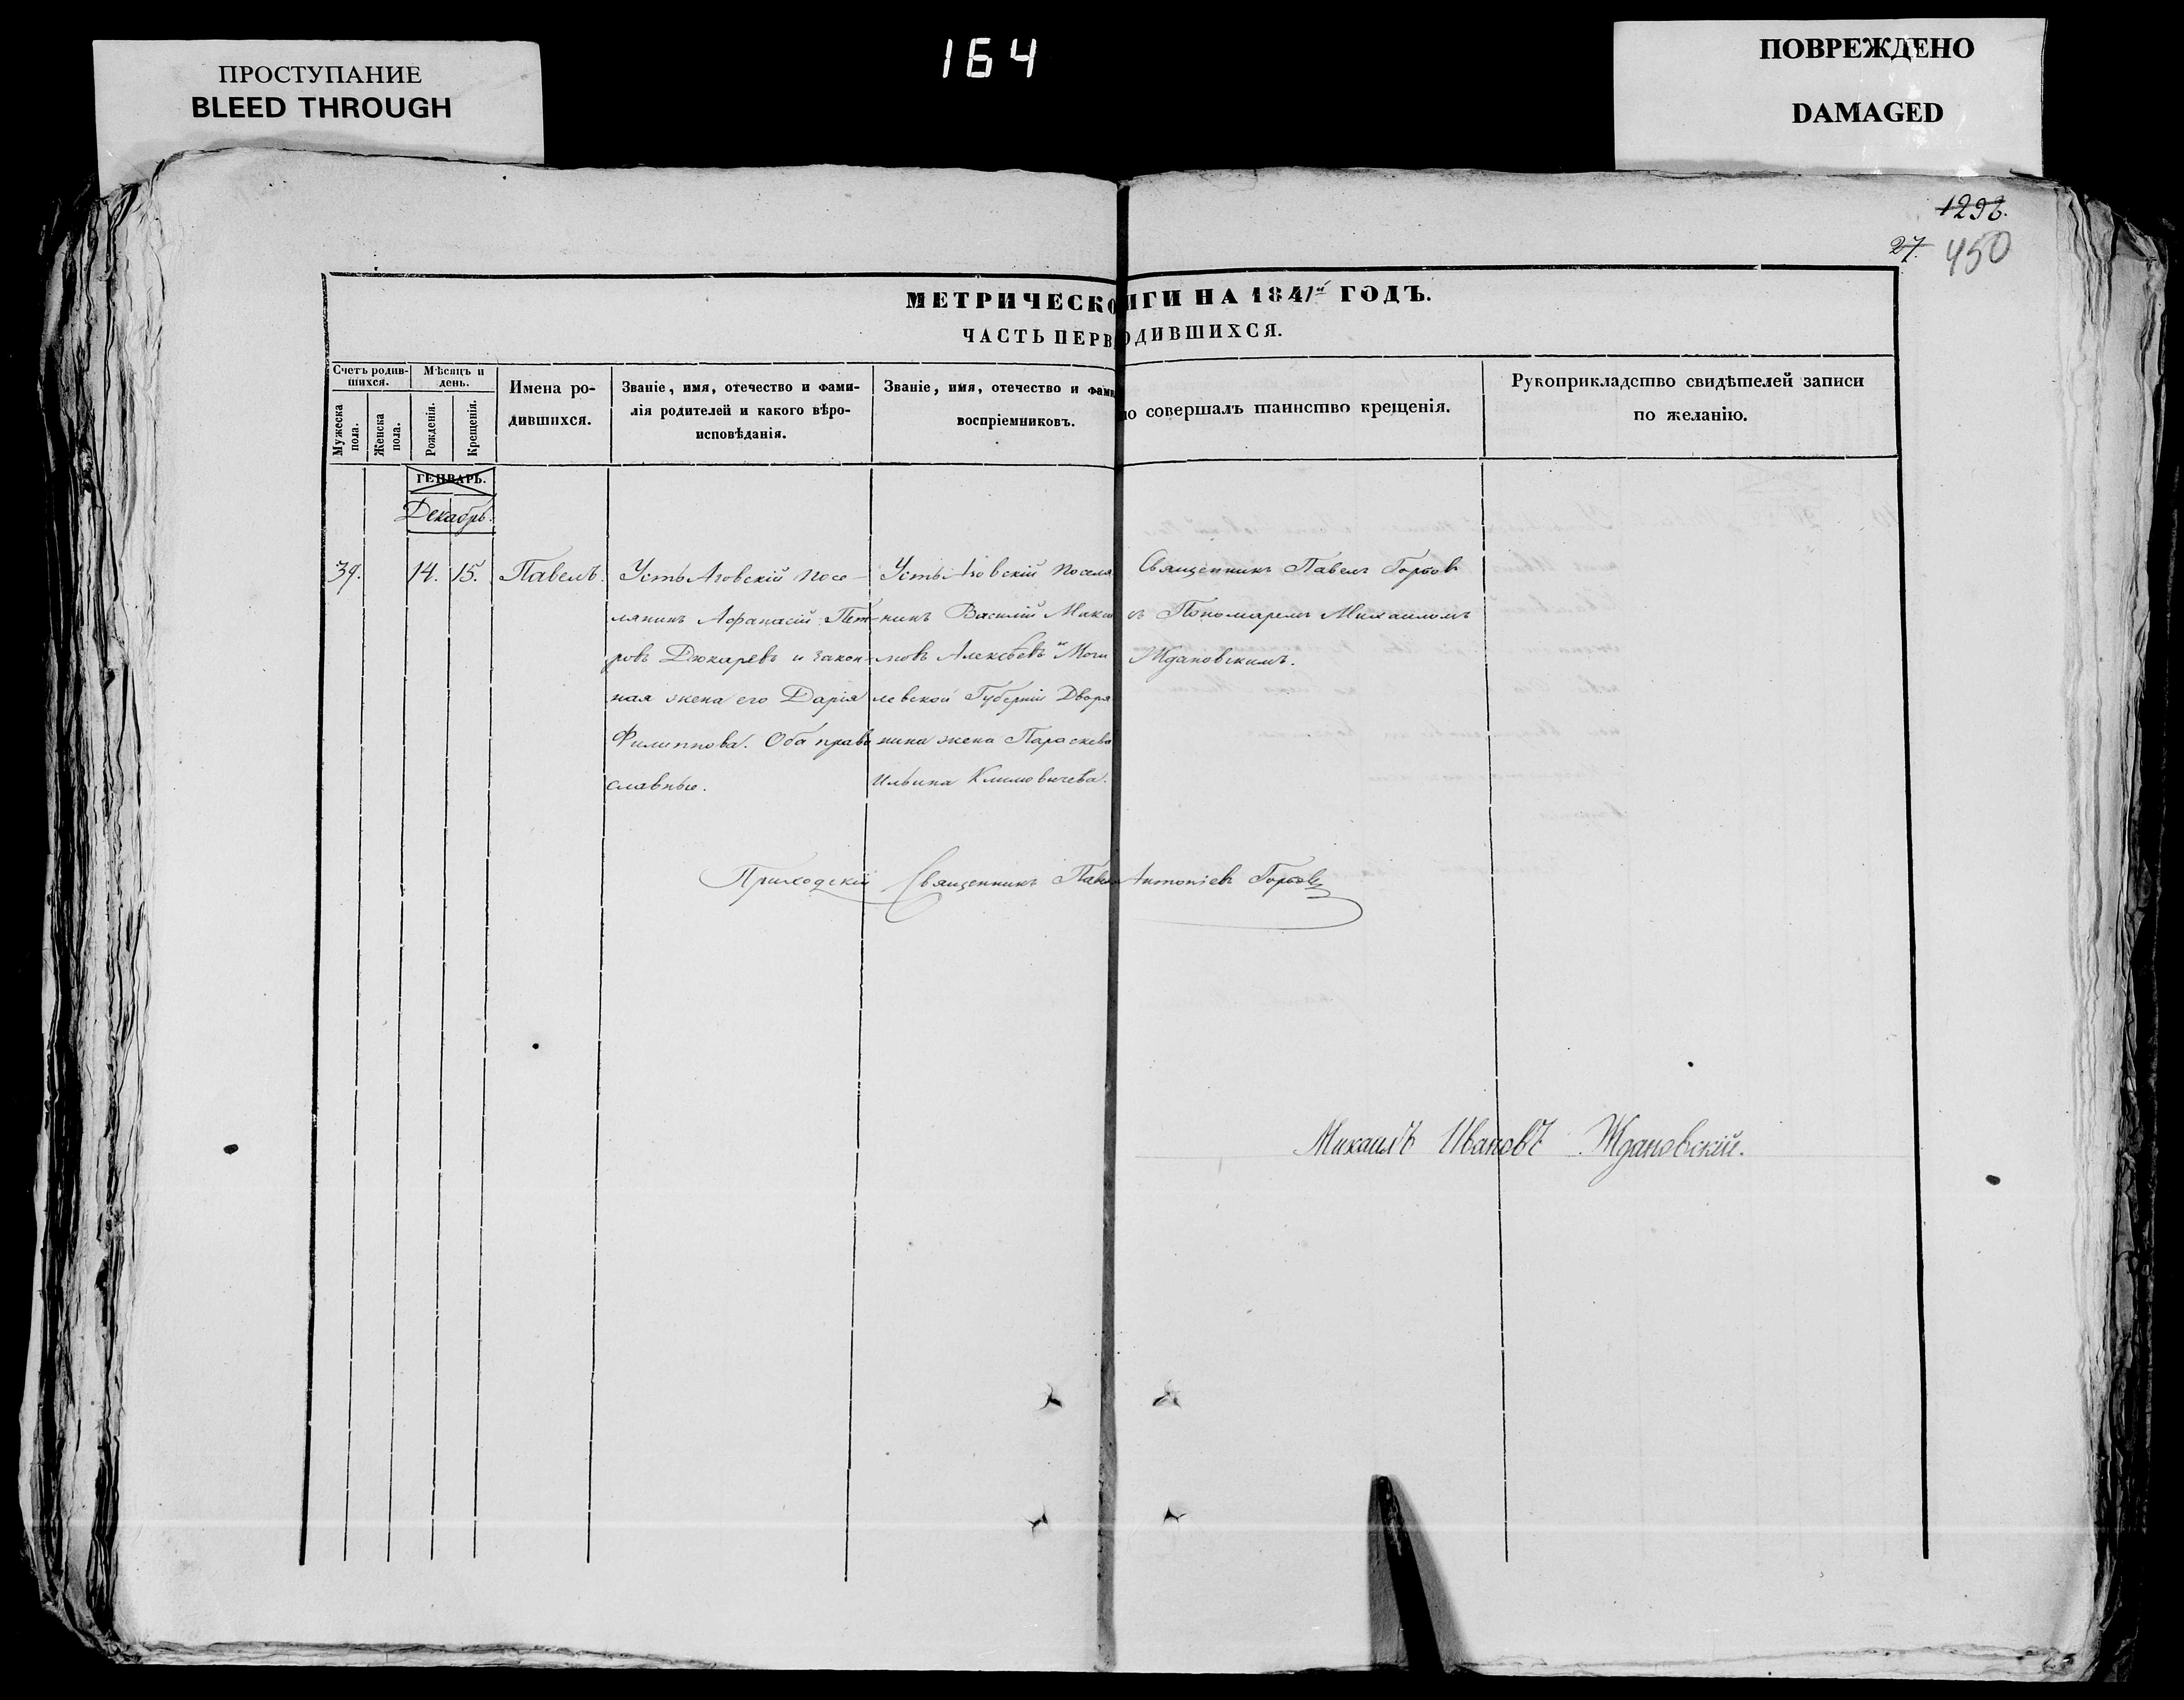 ПРОСТУПАНИЕ
BLEED THROUGH
164
ПОВРЕЖДЕНО
DAMAGED
1293.
27.
450
МЕТРИЧЕСКО ИГИ НА 1841й ГОДЪ.
ЧАСТЬ ПЕРВ ОДИВШИХСЯ.
Счетъ родив-
шихся.
Мужеска
пола.
Женска
пола.
Мѣсяцъ и
день.
Рожденія.
Крещенія.
Имена ро-
дившихся.
Званіе, имя, отечество и фами-
лія родителей и какого вѣро-
исповѣданія.
Званіе, имя, отечество и фами
воспріемниковъ.
о совершалъ таинство крещенія.
Рукоприкладство свидѣтелей записи
по желанію.
ГЕНВАРЬ.
Декабрь.
39.
14.
15.
Павелъ.
Усть Аговскій посе-
лянинъ Афанасій Пет-
ровъ Дюкаревъ и закон-
ная жена его Дарія
Филиппова. Оба право
славные.
Усть Аговскій поселя
нинъ Василій Макси
мовъ Алексѣевъ и Моги
левской Губерніи Дворя
нина жена Параскева
Ильина Климовичева.
Священникъ Павелъ Горбовъ
съ Пономаремъ Михаиломъ
Ждановскимъ.
Приходскій Священникъ Павелъ Антоніевъ Горбовъ
Михаилъ Ивановъ Ждановскій.